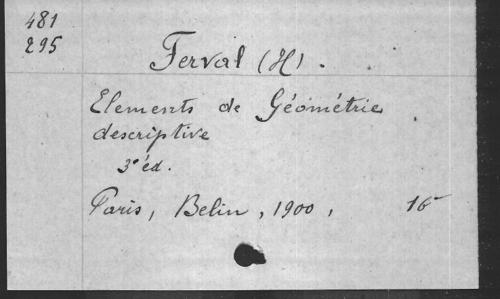 481
295
Ferval (H).
Elements de Géométrie
descriptive
3e éd.
Paris, Belin, 1900, 16°